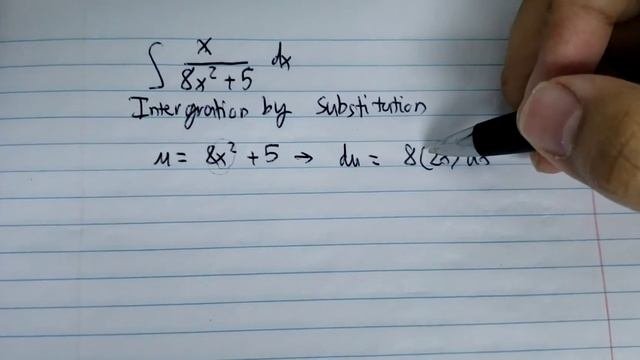 ∫ x / (8x² + 5) dx
Intergration by Substitution
u = 8x² + 5 → du = 8(2x)